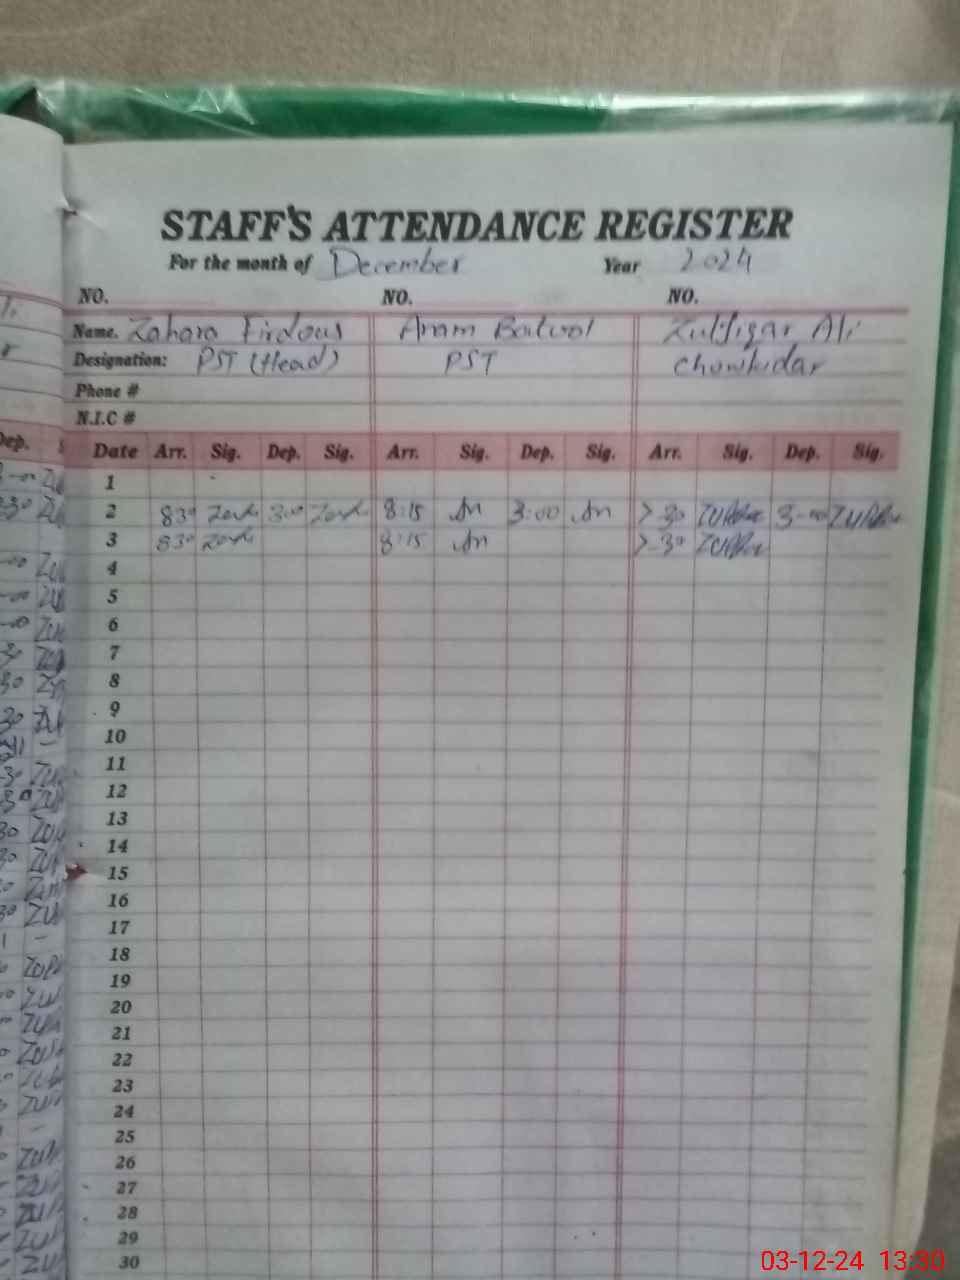 STAFF'S ATTENDANCE REGISTER
For the month of December Year 2024
NO. NO. NO.
Name. Zahara Firdous Anam Batool Zulfiqar Ali
Designation: PST (Head) PST Chowkidar
Phone #
N.I.C #
Date Arr. Sig. Dep. Sig. Arr. Sig. Dep. Sig. Arr. Sig. Dep. Sig.
1
2 830 3:00 8:15 An 3:00 An 7-30 3-00
3 830 8:15 An 7-30
4
5
6
7
8
9
10
11
12
13
14
15
16
17
18
19
20
21
22
23
24
25
26
27
28
29
30
03-12-24 13:30